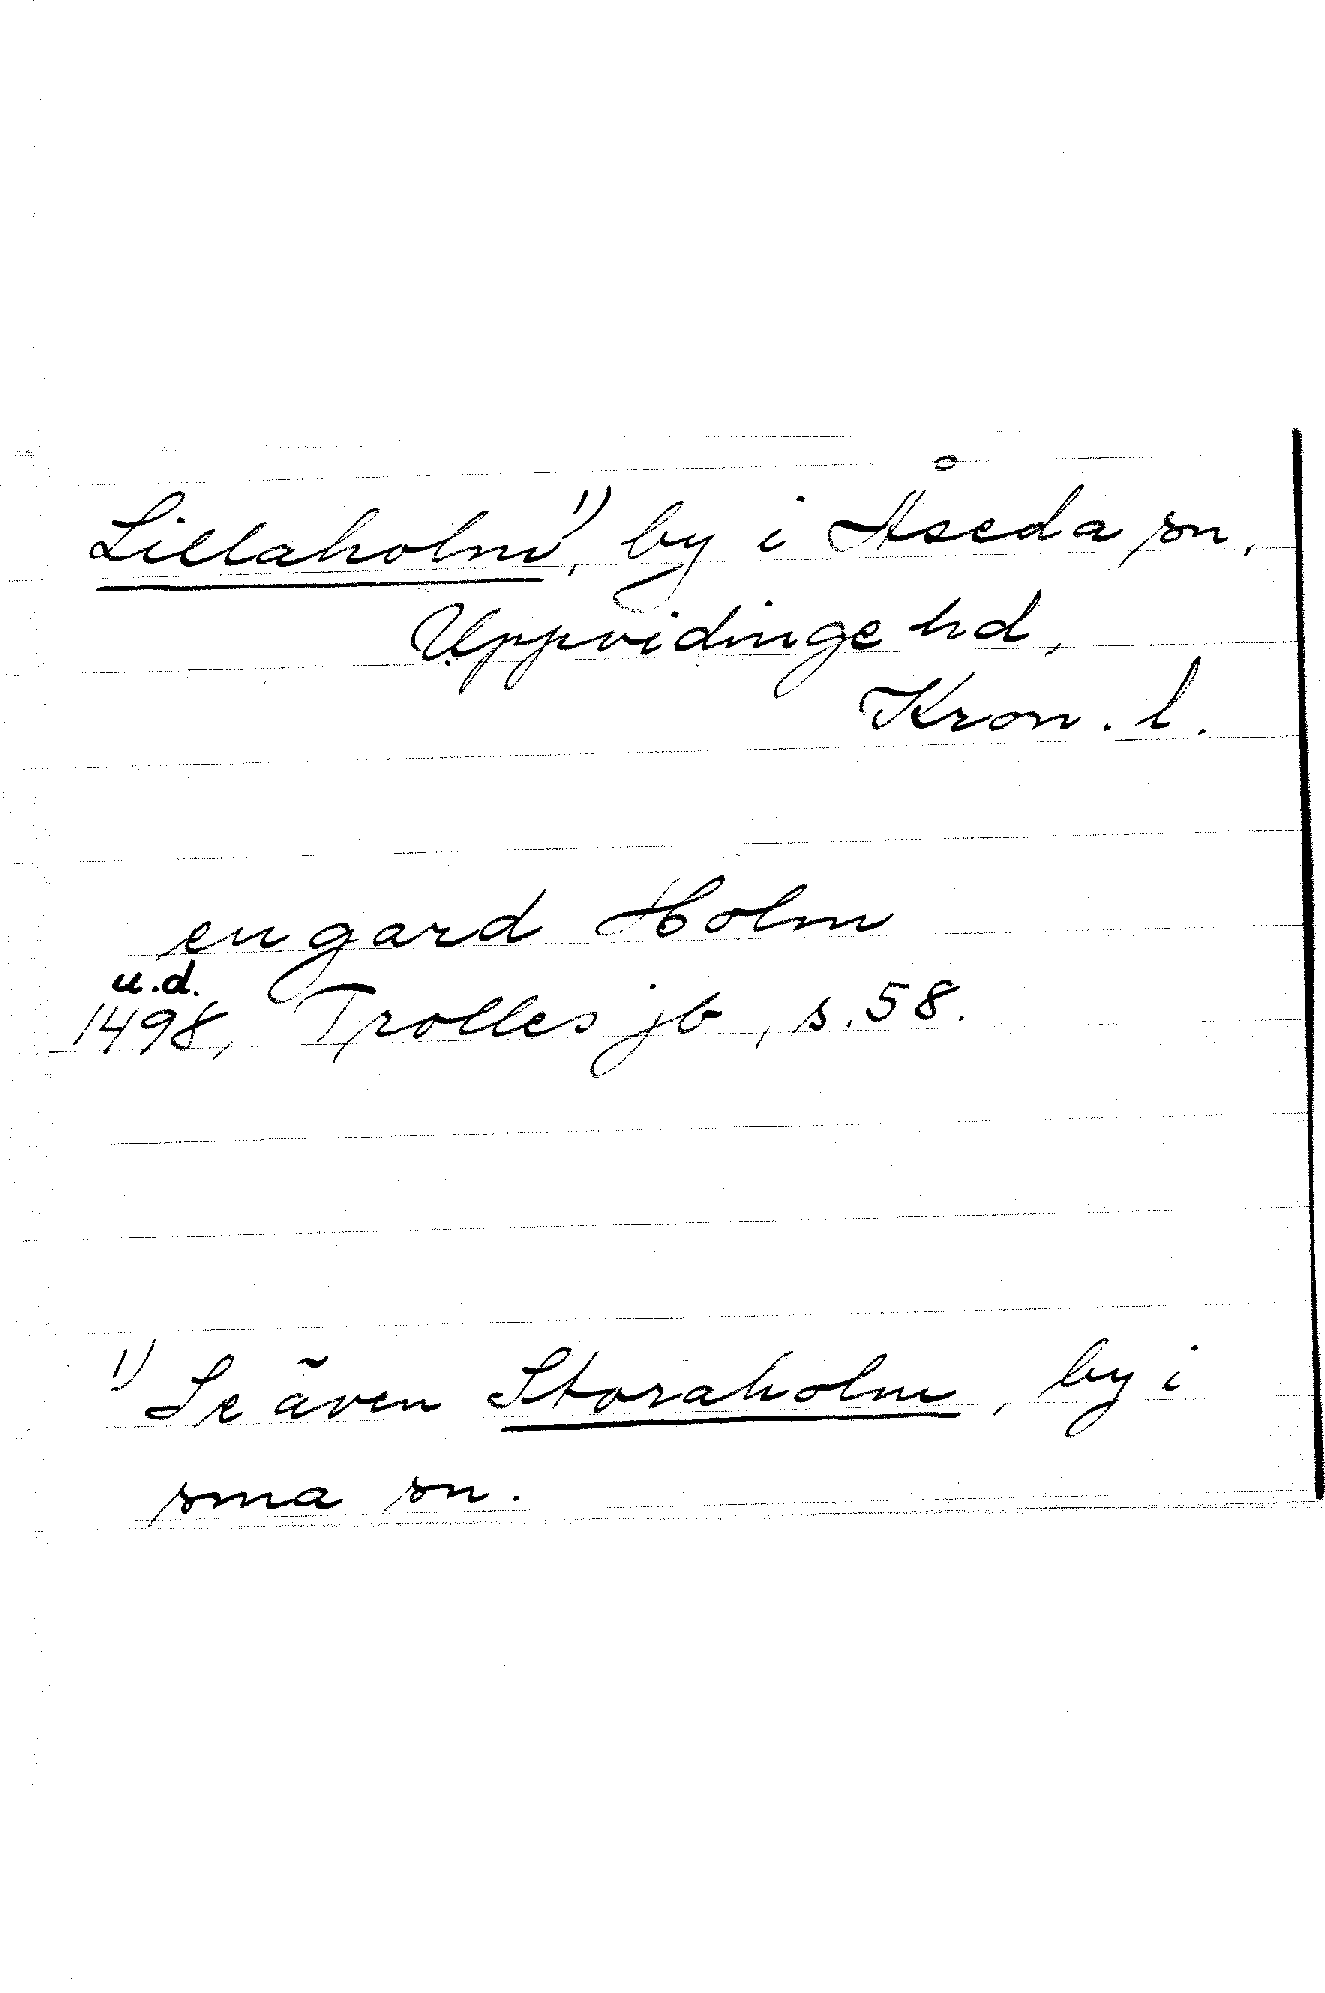 Lillaholm¹⁾, by i Åseda sn,
Uppvidinge hd,
Kron. l.
en gard Holm
u.d.
1498, Trolles jb, s. 58.
¹⁾ Se även Storaholm, by i
sma sn.